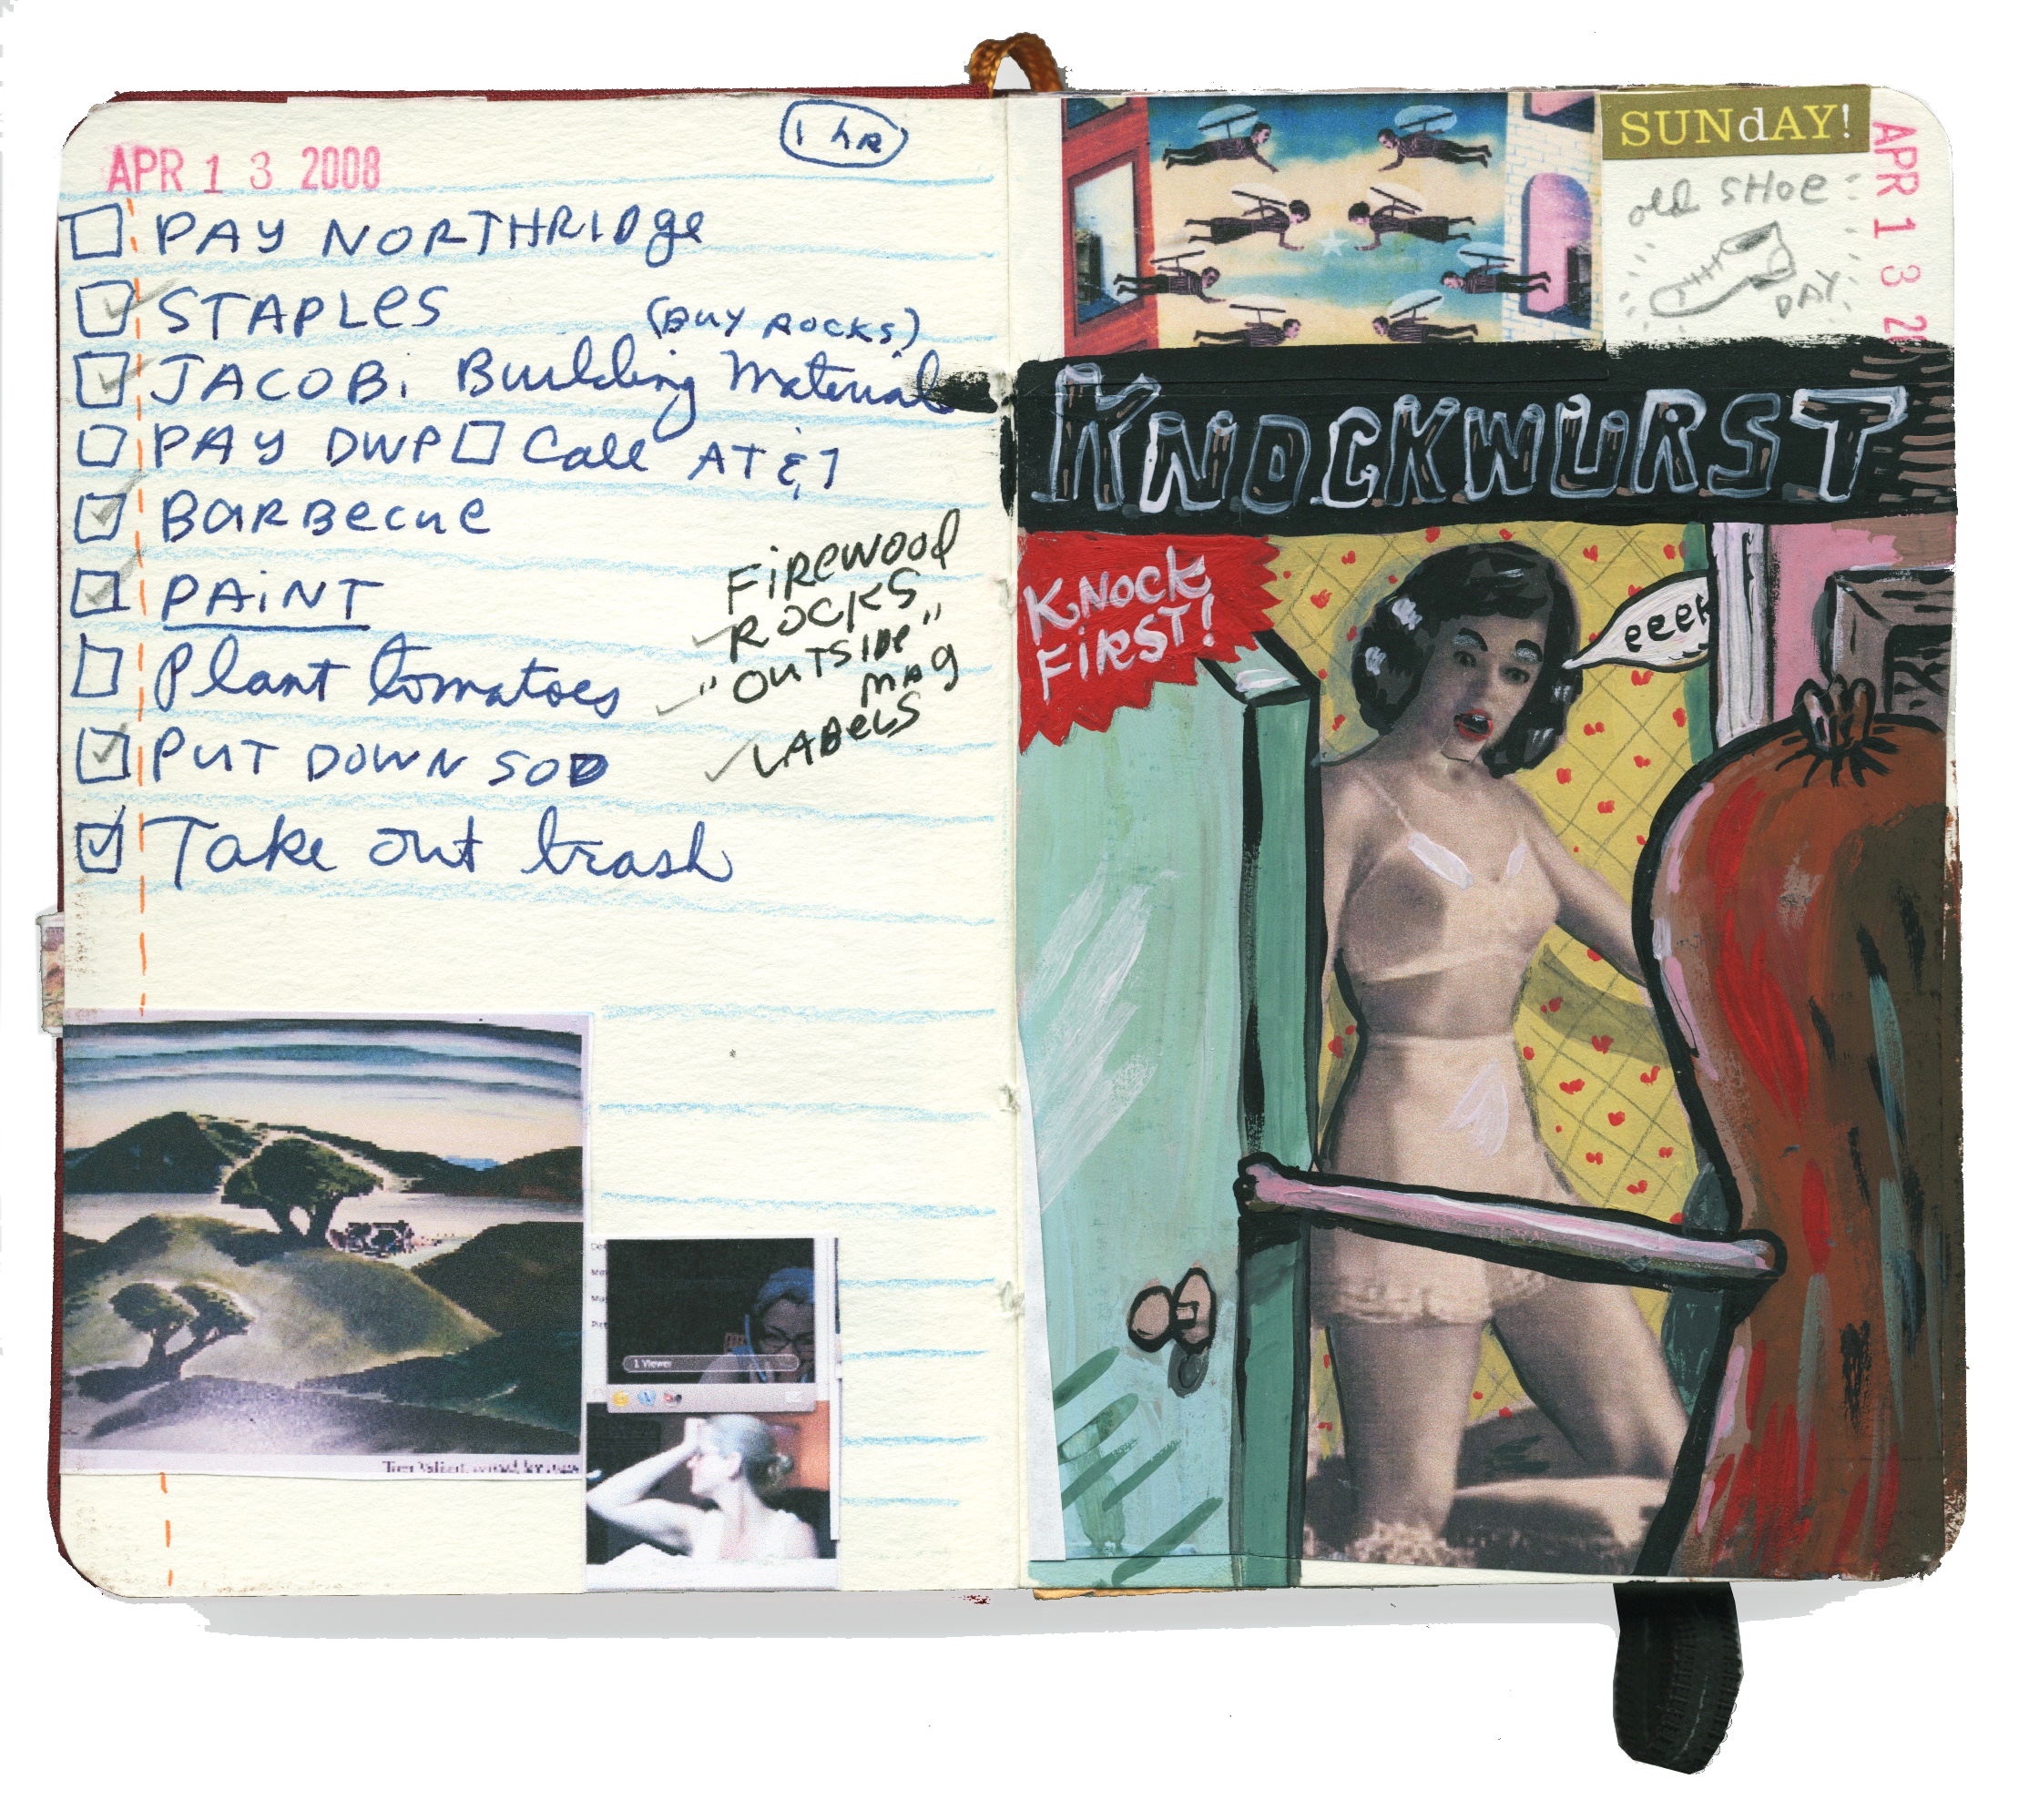 1 hr
APR 1 3 2008
PAY NORTHRIDge
STAPLes
(BUY ROCKS)
JACOBi Building Materials
PAY DWP Call AT&T
BARBecue
PAiNT
Plant tomatoes
PUT DOWN SOD
Take out trash
FiRewood
ROCKS
"OUTSIDe"
MAg
LABeLS
1 Viewer
SUNdAY!
APR 1 3 20
old SHoe
DAY
KNOCKWURST
KNOCK
FiRST!
eeek